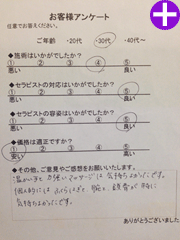 お客様アンケート
任意でお答えください。
ご年齢 ・20代 ・30代 ・40代～
◆施術はいかがでしたか？
① ② ③ ④ ⑤
悪い 良い
◆セラピストの対応はいかがでしたか？
① ② ③ ④ ⑤
悪い 良い
◆セラピストの容姿はいかがでしたか？
① ② ③ ④ ⑤
悪い 良い
◆価格は適正ですか？
① ② ③ ④ ⑤
安い 高い
◆その他、ご意見やご感想をお願いいたします。
気持ちよかったです。
個人的には ふくらはぎと、腕と
気持ちよかったです。
ありがとうございました